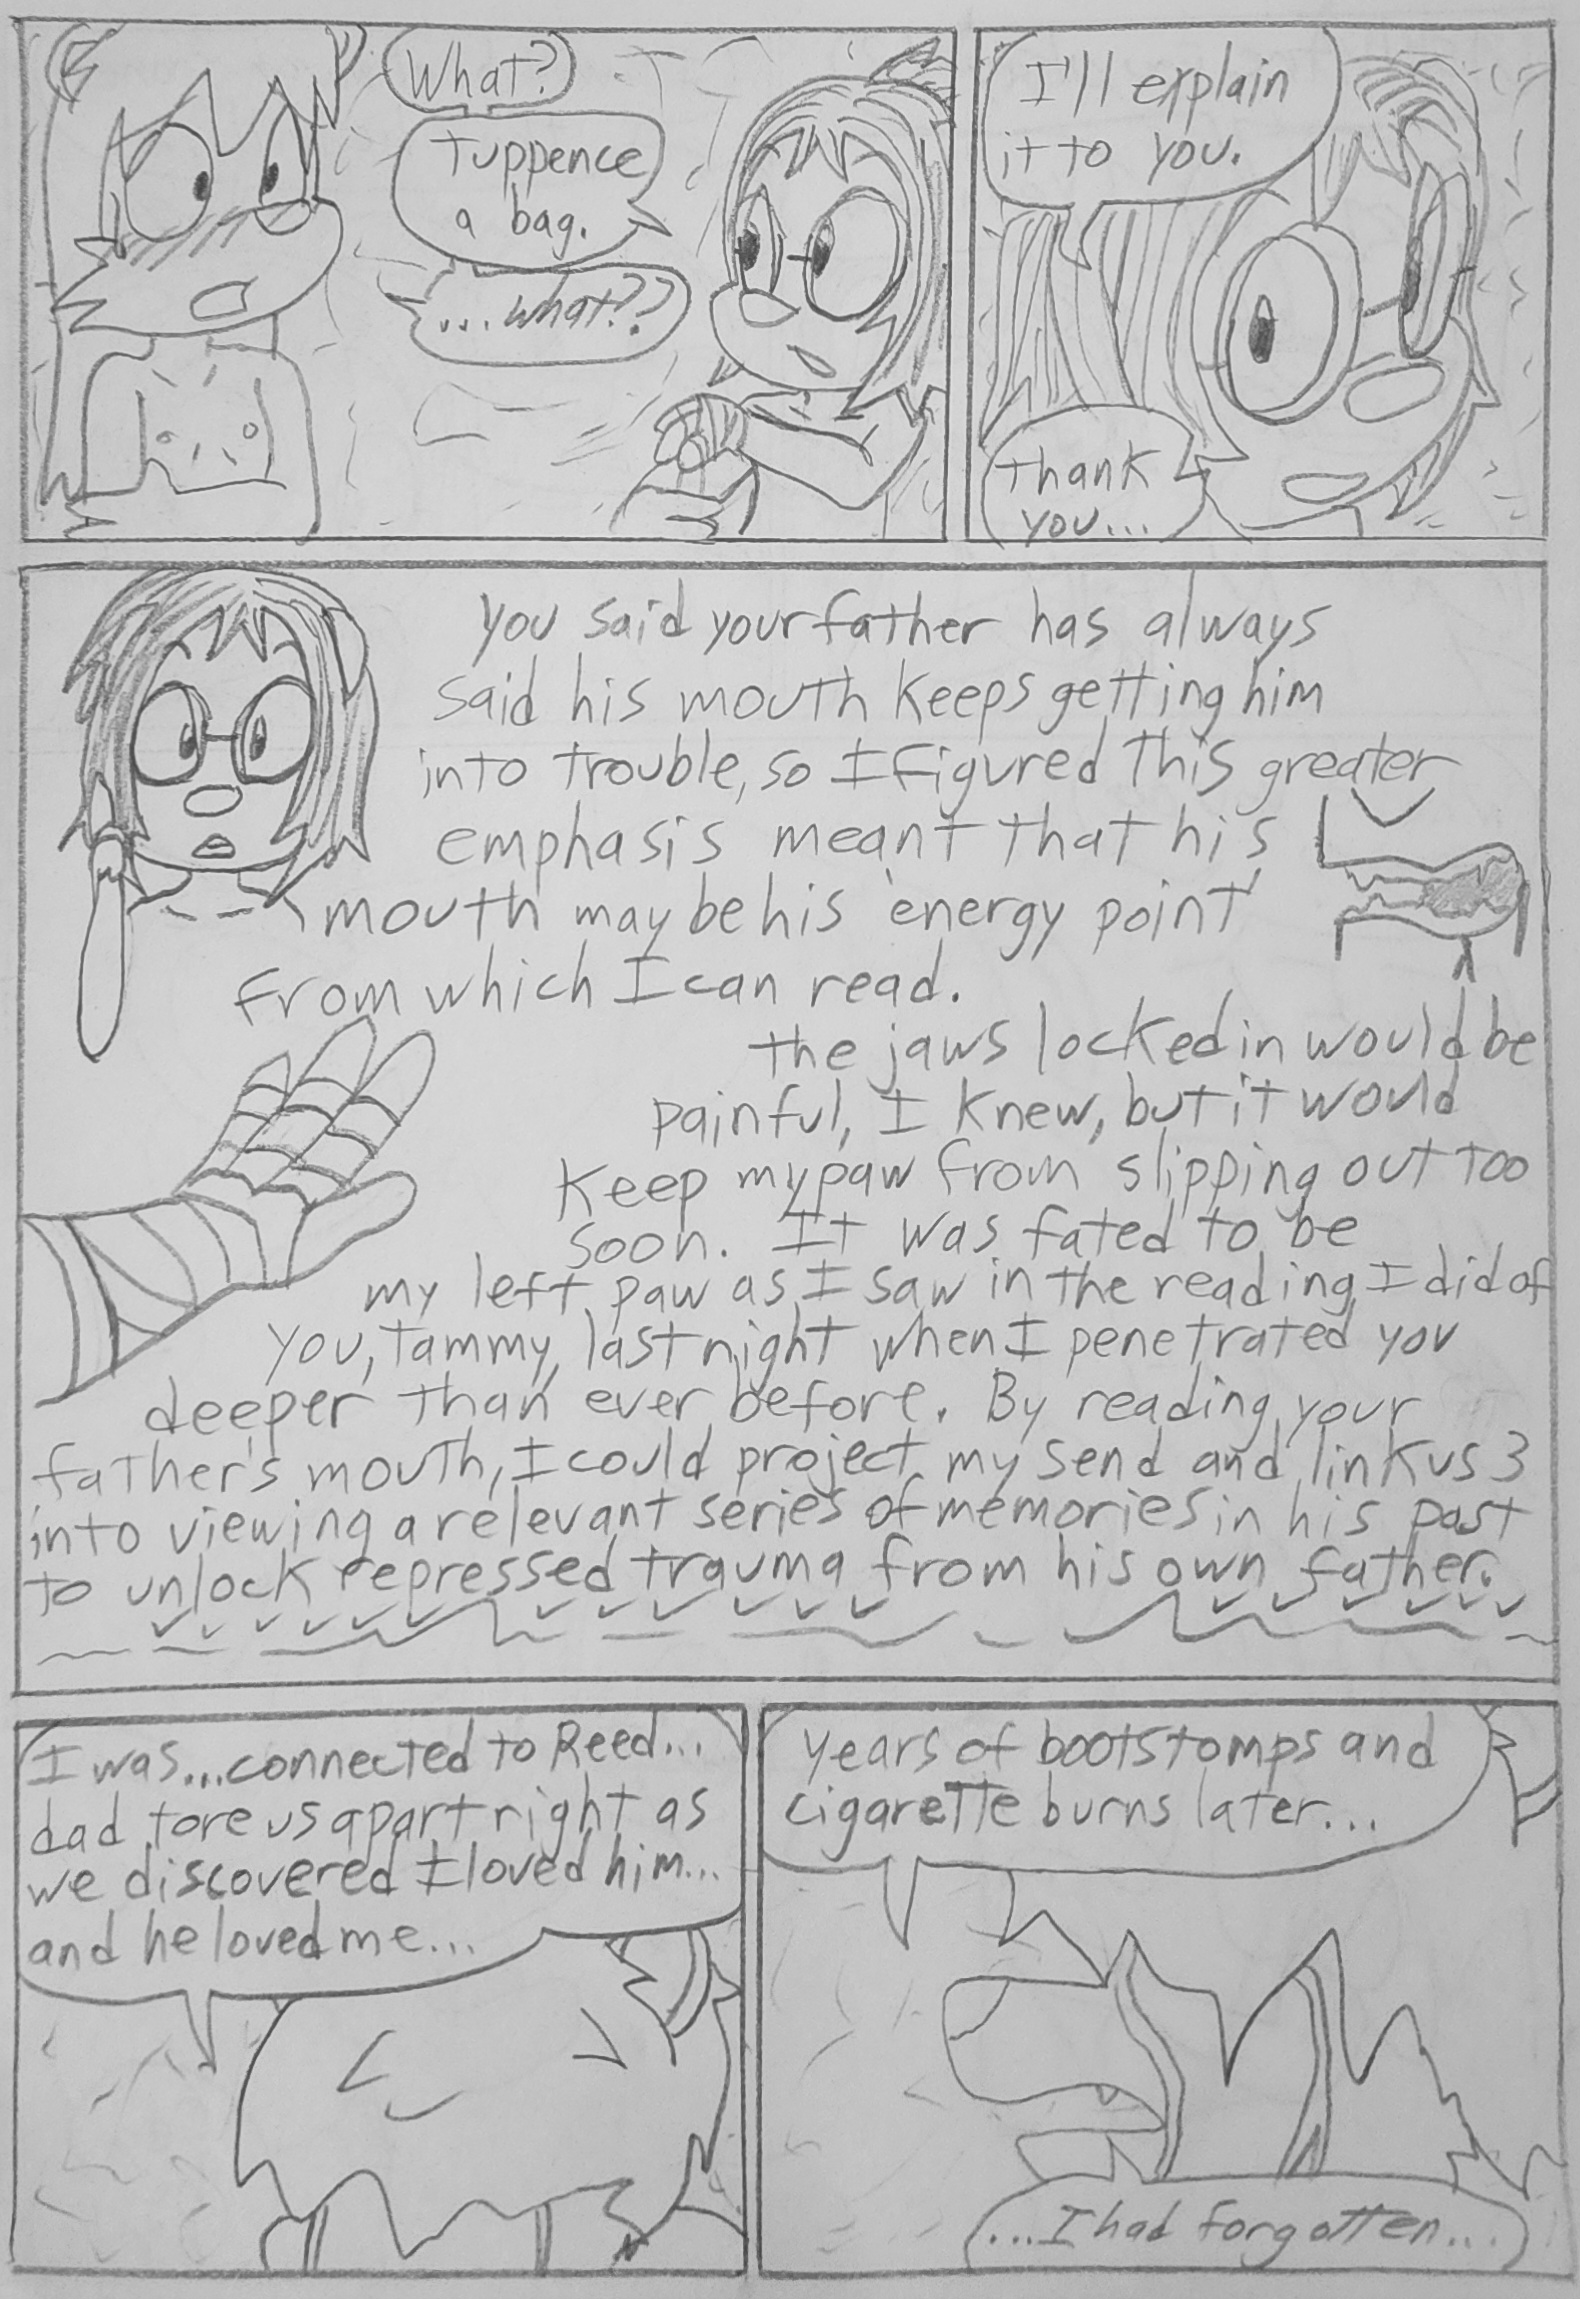 What?
Tuppence
a bag.
...what??
I'll explain
it to you.
Thank
you...
you said your father has always
said his mouth keeps getting him
into trouble, so I figured this greater
emphasis meant that his
mouth may be his 'energy point'
from which I can read.
the jaws locked in would be
painful, I knew, but it would
keep my paw from slipping out too
soon. It was fated to be
my left paw as I saw in the reading I did of
you, Tammy, last night when I penetrated you
deeper than ever before. By reading your
father's mouth, I could project my send and link us 3
into viewing a relevant series of memories in his past
to unlock repressed trauma from his own father.
I was...connected to Reed...
dad tore us apart right as
we discovered I loved him...
and he loved me...
years of bootstomps and
cigarette burns later...
...I had forgotten...